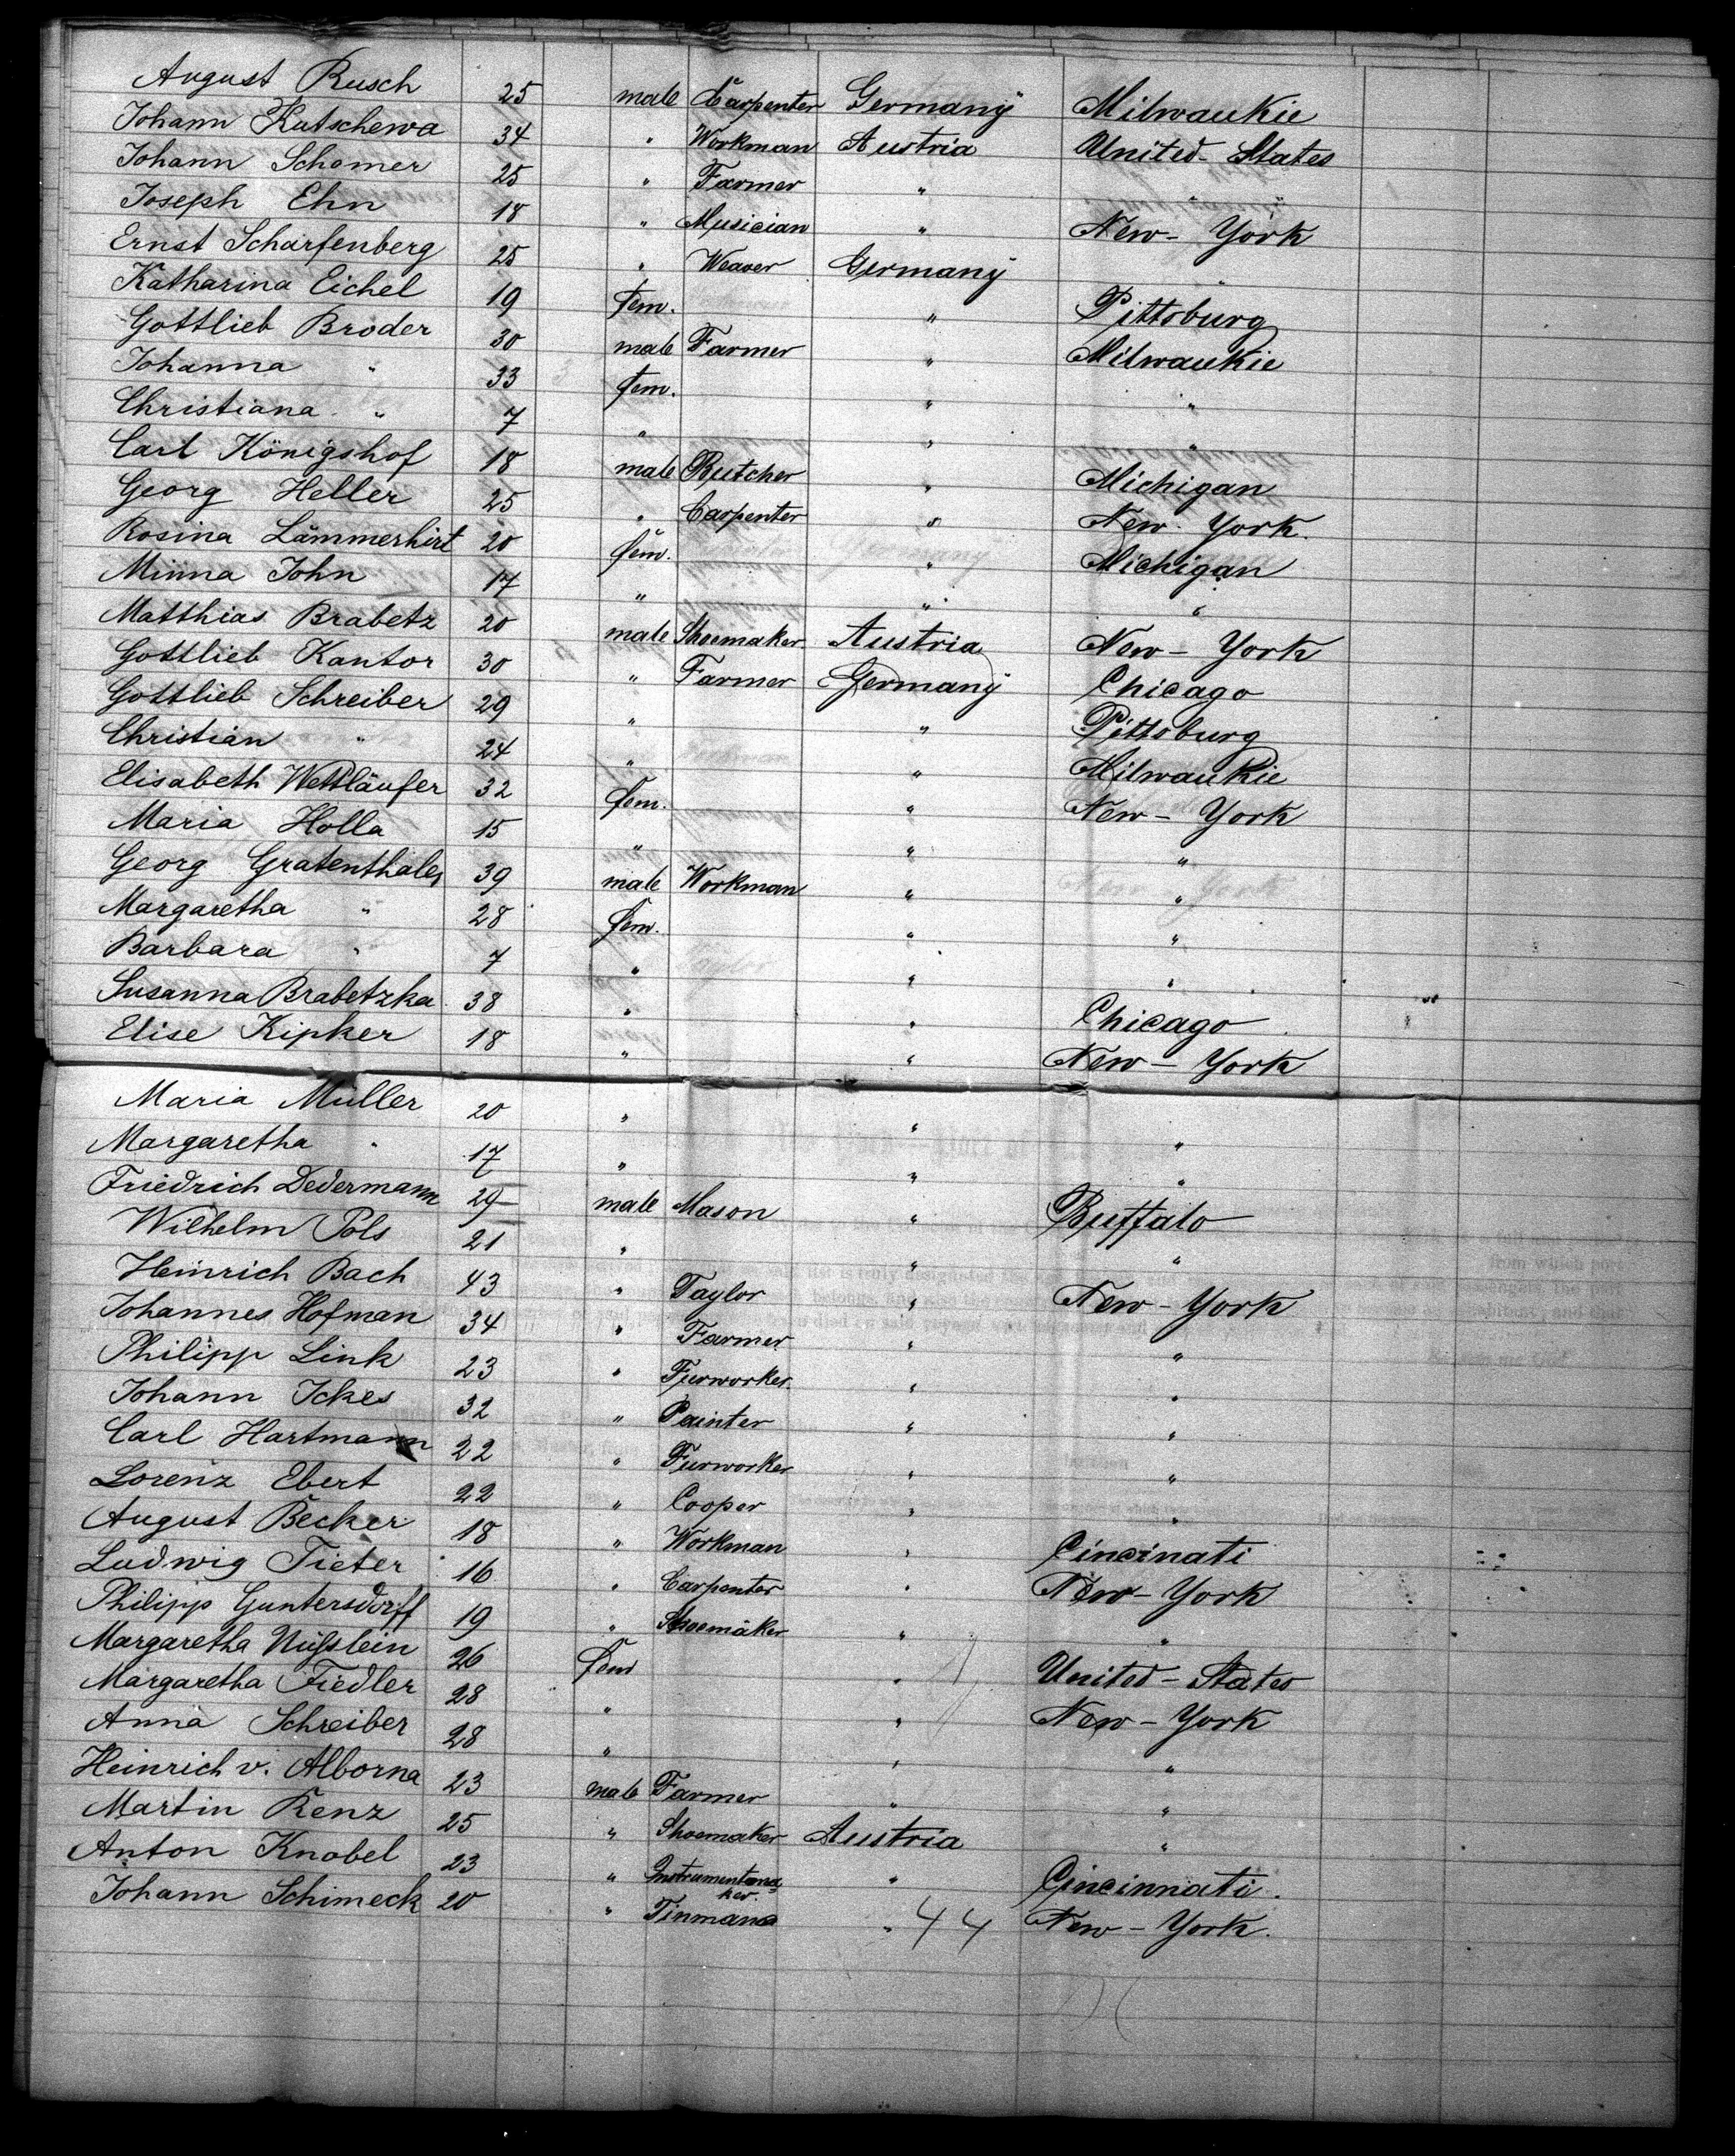 August Rusch 25 male Carpenter Germany Milwaukie
Johann Kutschewa 34 " Workman Austria United-States
Johann Schomer 25 " Farmer " " "
Joseph Ehn 18 " Musician " New-York
Ernst Scharfenberg 25 " Weaver Germany "
Katharina Eichel 19 fem. " Pittsburg
Gottlieb Broder 30 male Farmer " Milwaukie
Johanna " 33 fem. " "
Christiana " 7 " " "
Carl Königshof 18 male Butcher " Michigan
Georg Heller 25 " Carpenter " New-York.
Rosina Lämmerhirt 20 fem. " Michigan
Minna John 17 " " "
Matthias Brabetz 20 male Shoemaker Austria New-York
Gottlieb Kantor 30 " Farmer Germany Chicago
Gottlieb Schreiber 29 " " Pittsburg
Christian " 24 " " Milwaukie
Elisabeth Wettläufer 32 fem. " New-York
Maria Holla 15 " " "
Georg Gratenthaler 39 male Workman " "
Margaretha " 28 fem. " "
Barbara " 7 " " "
Susanna Brabetzka 38 " " Chicago
Elise Kipker 18 " " New-York
Maria Müller 20 " " "
Margaretha " 17 " " "
Friedrich Dedermann 29 male Mason " Buffalo
Wilhelm Pols 21 " " "
Heinrich Bach 43 " Taylor " New-York
Johannes Hofman 34 " Farmer " "
Philipp Link 23 " Furworker. " "
Johann Ickes 32 " Painter " "
Carl Hartmann 22 " Furworker " "
Lorenz Ebert 22 " Cooper " "
August Becker 18 " Workman " Cincinati
Ludwig Tieter 16 " Carpenter " New-York
Philipp Guntersdorff 19 " Shoemaker " "
Margaretha Nüßlein 26 fem " United-States
Margaretha Fiedler 28 " " New-York
Anna Schreiber 28 " " "
Heinrich v. Alborna 23 male Farmer " "
Martin Renz 25 " Shoemaker Austria "
Anton Knobel 23 " Instrumentma= " Cincinnati.
ker.
Johann Schimeck 20 " Tinman " 44 New-York.